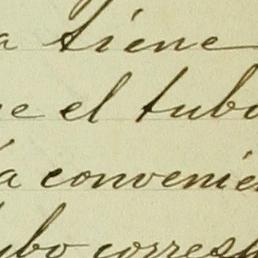 a tiene
e el tubo
a convenie
ubo corresp